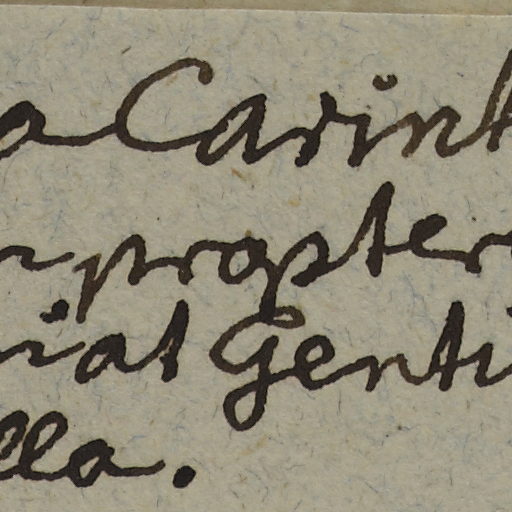 a Carint
n propter
iat Genti
lla.